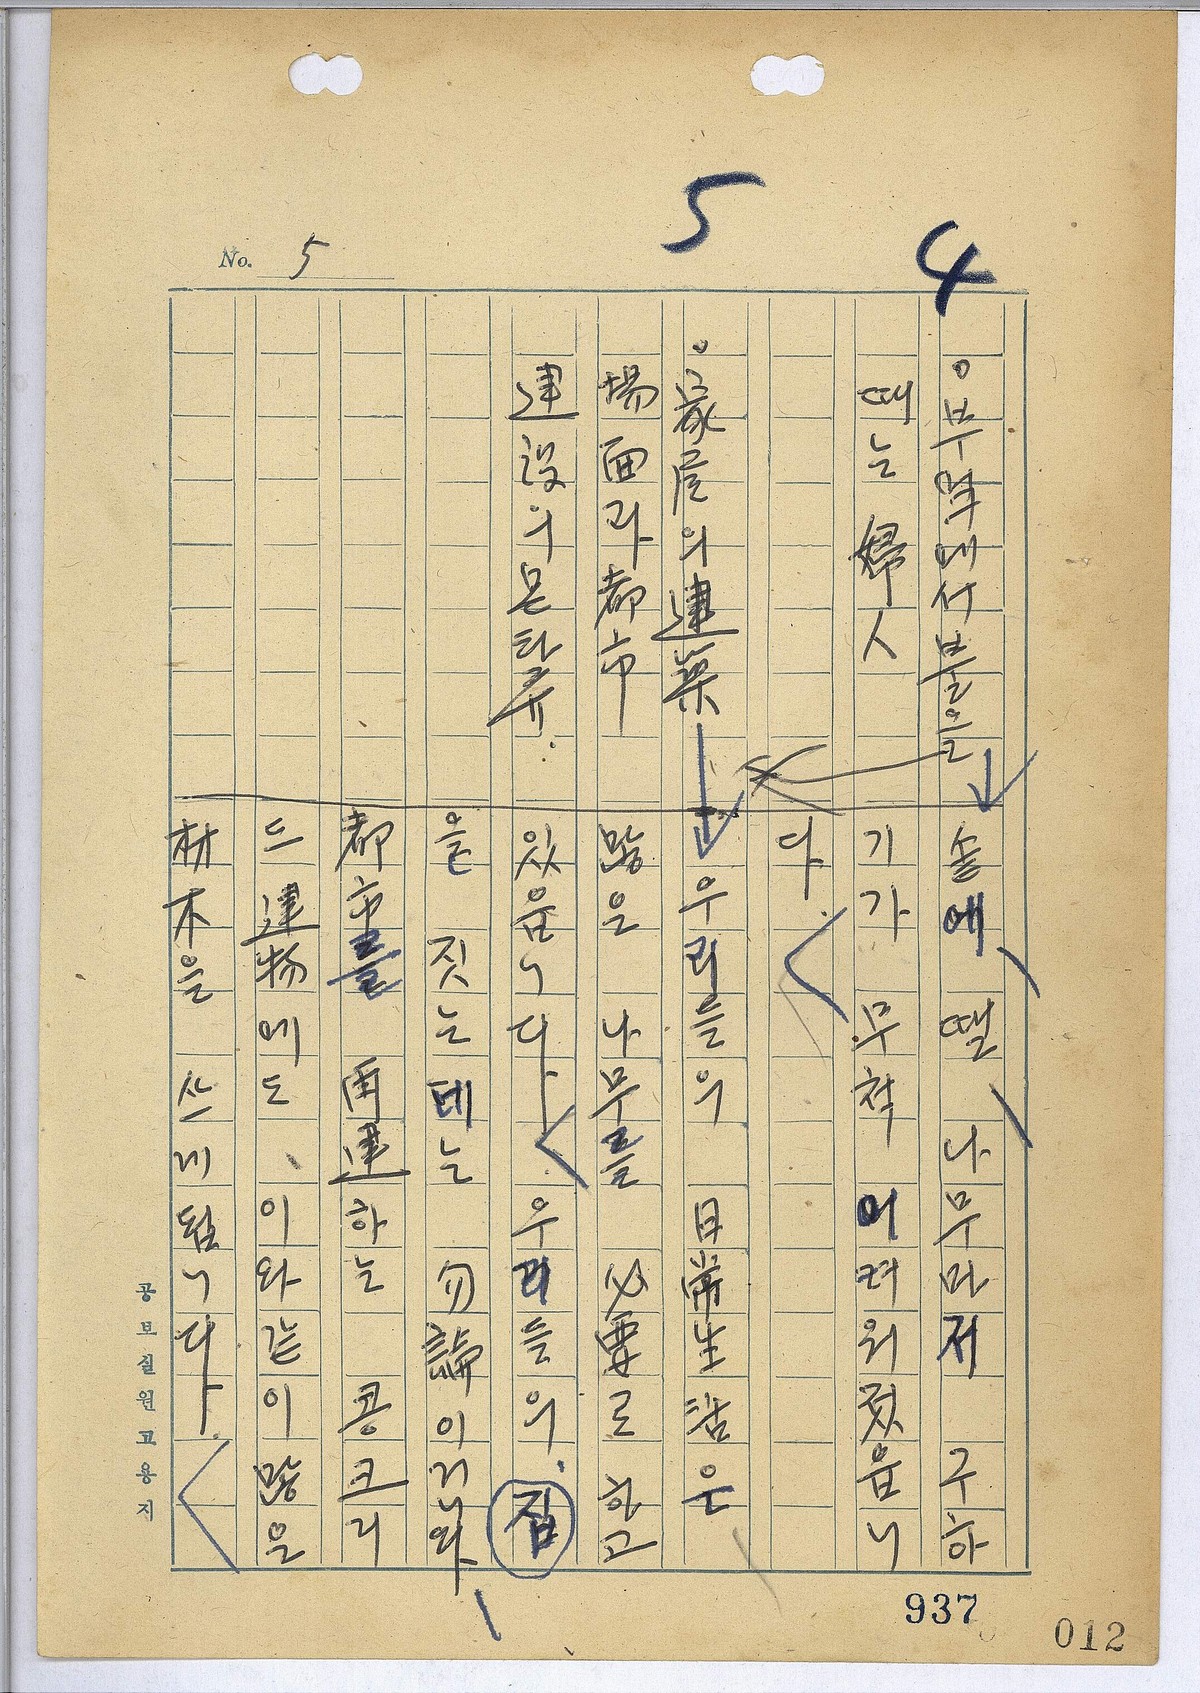 No. 5
4
5
부엌에서 불을
때는 婦人
家屋의 建築
場面과 都市
建設의 몬타쥬.
솥에 땔 나무마저 구하
기가 무척 어려워젔읍니
다.
우리들의 日常生活은
많은 나무를 必要로 하고
있읍니다. 우리들의 집
을 짓는데는 勿論이러니와
都市를 再建하는 콩크리
드 建物에도 이와 같이 많은
材木을 쓰게 됩니다.
공보실원고용지
937
012